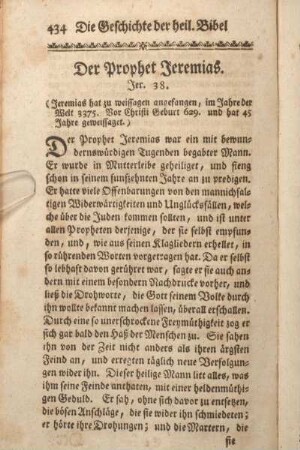 434 Die Geschichte der heil. Bibel
Der Prophet Jeremias.
Jer. 38.
(Jeremias hat zu weissagen angefangen, im Jahre der
Welt 3375. Vor Christi Geburt 629. und hat 45
Jahre geweissaget.)
Der Prophet Jeremias war ein mit bewun-
dernswürdigen Tugenden begabter Mann.
Er wurde in Mutterleibe geheiliget, und fieng
schon in seinem funfzehnten Jahre an zu predigen.
Er hatte viele Offenbarungen von den mannichfal-
tigen Widerwärtigkeiten und Unglücksfällen, wel-
che über die Juden kommen sollten, und ist unter
allen Propheten derjenige, der sie selbst empfun-
den, und, wie aus seinen Klagliedern erhellet, in
so rührenden Worten vorgetragen hat. Da er selbst
so lebhaft davon gerühret war, sagte er sie auch an-
dern mit einem besondern Nachdrucke vorher, und
ließ die Drohworte, die Gott seinem Volke durch
ihn wollte bekannt machen lassen, überall erschallen.
Durch eine so unerschrockene Freymüthigkeit zog er
sich gar bald den Haß der Menschen zu. Sie sahen
ihn von der Zeit nicht anders als ihren ärgsten
Feind an, und erregten täglich neue Verfolgun-
gen wider ihn. Dieser heilige Mann litt alles, was
ihm seine Feinde anthaten, mit einer heldenmüthi-
gen Geduld. Er sah, ohne sich davor zu entsetzen,
die bösen Anschläge, die sie wider ihn schmiedeten;
er hörte ihre Drohungen; und die Martern, die
sie